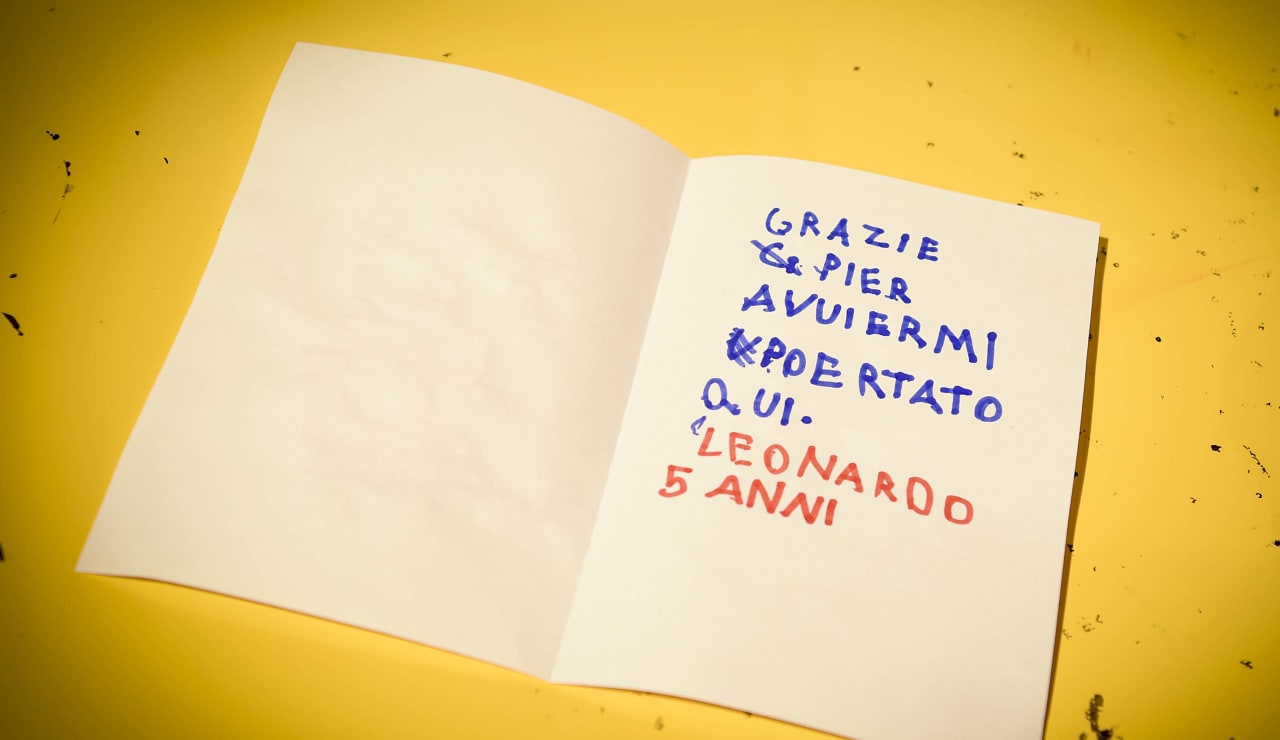 GRAZIE
PIER
AVUIERMI
POERTATO
QUI.
LEONARDO
5 ANNI